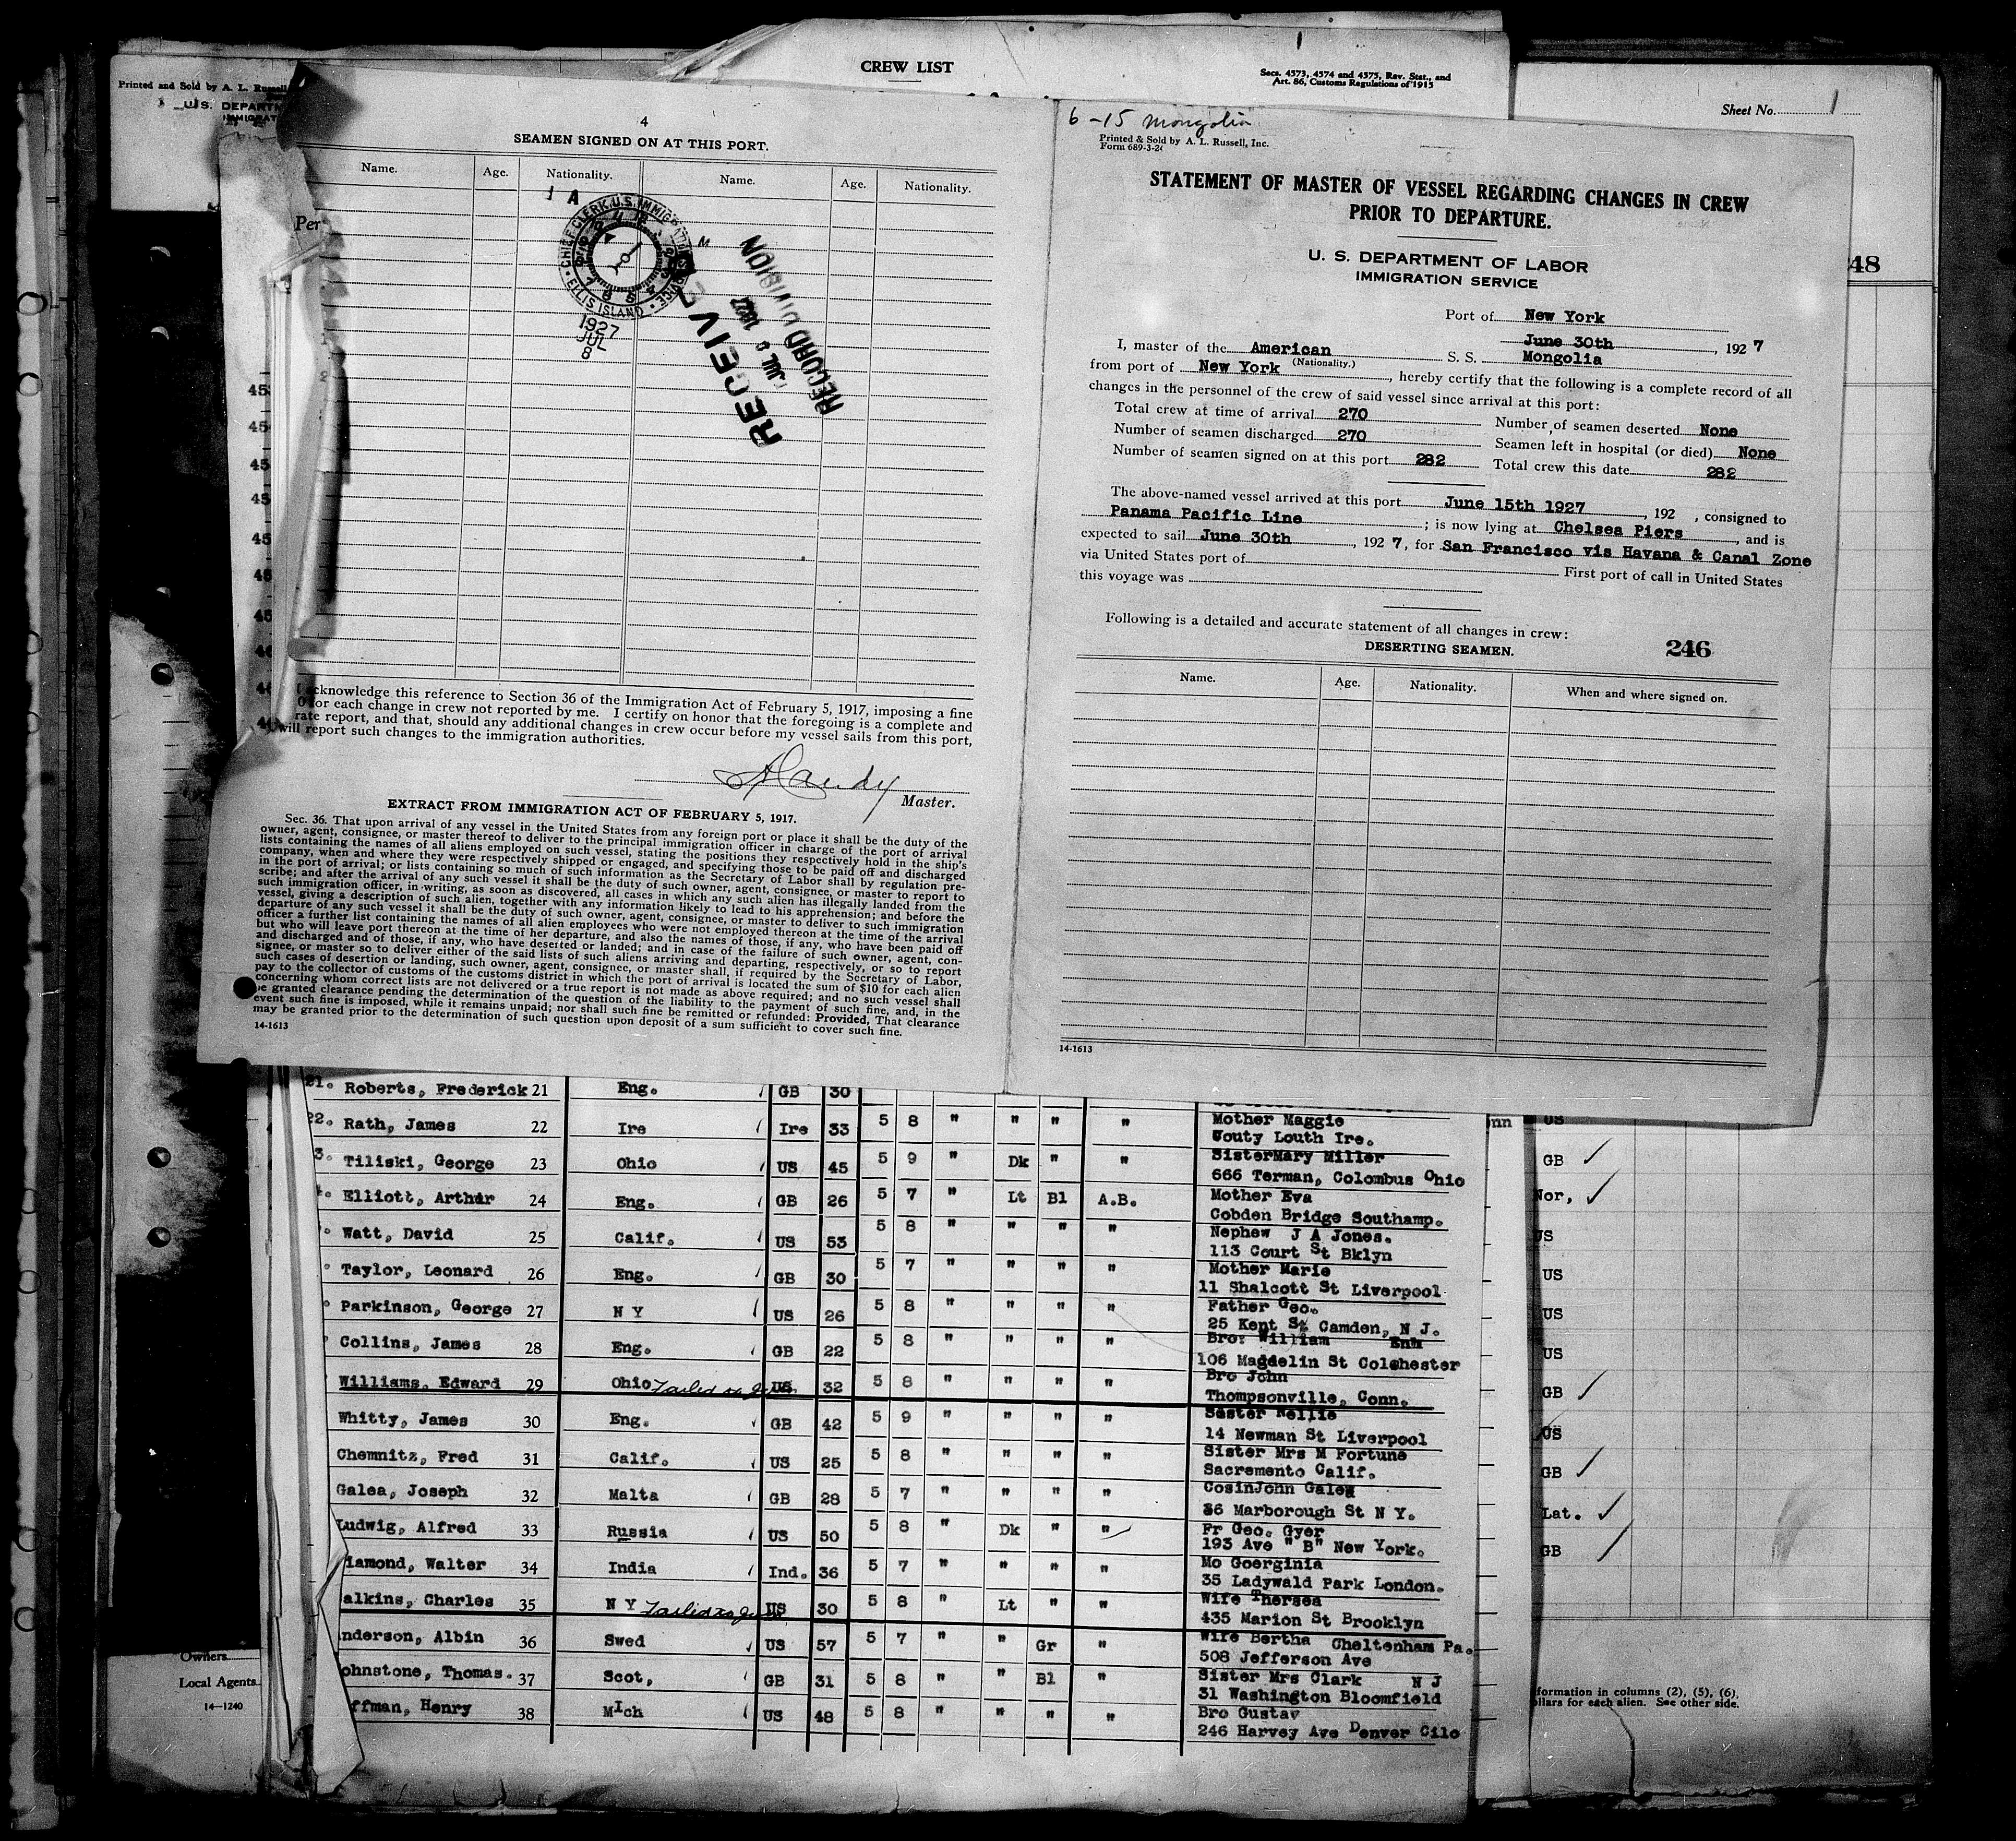 CREW LIST
Secs. 4573, 4574 and 4575, Rev. Stat., and
Art. 86, Customs Regulations of 1915
Printed and Sold by A. L. Russell
U.S. DEPARTM
IMMIGRAT
Sheet No. 1
48
4
SEAMEN SIGNED ON AT THIS PORT.
Name. Age. Nationality. Name. Age. Nationality.
Per
CHIEF CLERK, U.S. IMMIGRATION SERVICE
ELLIS ISLAND
1927
JUL
8
RECEIVED
JUL 1927
RECORD DIVISION
acknowledge this reference to Section 36 of the Immigration Act of February 5, 1917, imposing a fine
for each change in crew not reported by me. I certify on honor that the foregoing is a complete and
rate report, and that, should any additional changes in crew occur before my vessel sails from this port,
will report such changes to the immigration authorities.
Master.
EXTRACT FROM IMMIGRATION ACT OF FEBRUARY 5, 1917.
Sec. 36. That upon arrival of any vessel in the United States from any foreign port or place it shall be the duty of the
owner, agent, consignee, or master thereof to deliver to the principal immigration officer in charge of the port of arrival
lists containing the names of all aliens employed on such vessel, stating the positions they respectively hold in the ship's
company, when and where they were respectively shipped or engaged, and specifying those to be paid off and discharged
in the port of arrival; or lists containing so much of such information as the Secretary of Labor shall by regulation pre-
scribe; and after the arrival of any such vessel it shall be the duty of such owner, agent, consignee, or master to report to
such immigration officer, in writing, as soon as discovered, all cases in which any such alien has illegally landed from the
vessel, giving a description of such alien, together with any information likely to lead to his apprehension; and before the
departure of any such vessel it shall be the duty of such owner, agent, consignee, or master to deliver to such immigration
officer a further list containing the names of all alien employees who were not employed thereon at the time of the arrival
but who will leave port thereon at the time of her departure, and also the names of those, if any, who have been paid off
and discharged and of those, if any, who have deserted or landed; and in case of the failure of such owner, agent, con-
signee, or master so to deliver either of the said lists of such aliens arriving and departing, respectively, or so to report
such cases of desertion or landing, such owner, agent, consignee, or master shall, if required by the Secretary of Labor,
pay to the collector of customs of the customs district in which the port of arrival is located the sum of $10 for each alien
concerning whom correct lists are not delivered or a true report is not made as above required; and no such vessel shall
be granted clearance pending the determination of the question of the liability to the payment of such fine, and, in the
event such fine is imposed, while it remains unpaid; nor shall such fine be remitted or refunded: Provided, That clearance
may be granted prior to the determination of such question upon deposit of a sum sufficient to cover such fine.
14-1613
6-15 Mongolia
Printed & Sold by A. L. Russell, Inc.
Form 689-3-26
STATEMENT OF MASTER OF VESSEL REGARDING CHANGES IN CREW
PRIOR TO DEPARTURE.
U. S. DEPARTMENT OF LABOR
IMMIGRATION SERVICE
Port of New York
June 30th, 1927
I, master of the American S. S. Mongolia
(Nationality.)
from port of New York, hereby certify that the following is a complete record of all
changes in the personnel of the crew of said vessel since arrival at this port:
Total crew at time of arrival 270 Number of seamen deserted None
Number of seamen discharged 270 Seamen left in hospital (or died) None
Number of seamen signed on at this port 282 Total crew this date 282
The above-named vessel arrived at this port June 15th 1927, 192 , consigned to
Panama Pacific Line ; is now lying at Chelsea Piers, and is
expected to sail June 30th, 1927, for San Francisco vis Havana & Canal Zone
via United States port of First port of call in United States
this voyage was
Following is a detailed and accurate statement of all changes in crew:
DESERTING SEAMEN. 246
Name. Age. Nationality. When and where signed on.
14-1613
21. Roberts, Frederick 21 Eng. GB 30
22. Rath, James 22 Ire Ire 33 5 8 " " " " Mother Maggie
Couty Louth Ire.
3. Tiliski, George 23 Ohio US 45 5 9 " Dk " " SisterMary Miller
666 Terman, Colombus Ohio
4. Elliott, Arthur 24 Eng. GB 26 5 7 " Lt Bl A.B. Mother Eva
Cobden Bridge Southamp.
Watt, David 25 Calif. US 53 5 8 " " " " Nephew J A Jones.
113 Court St Bklyn
Taylor, Leonard 26 Eng. GB 30 5 7 " " " " Mother Marie
11 Shalcott St Liverpool
Parkinson, George 27 N Y US 26 5 8 " " " " Father Geo.
25 Kent St Camden, N J.
Collins, James 28 Eng. GB 22 5 8 " " " " Bro: William Enh
106 Magdelin St Colchester
Williams, Edward 29 Ohio Failed to join US 32 5 8 " " " " Bro John
Thompsonville, Conn.
Whitty, James 30 Eng. GB 42 5 9 " " " " Sister Nellie
14 Newman St Liverpool
Chemnitz, Fred 31 Calif. US 25 5 8 " " " " Sister Mrs M Fortune
Sacremento Calif.
Galea, Joseph 32 Malta GB 28 5 7 " " " " CosinJohn Galea
36 Marborough St N Y.
Ludwig, Alfred 33 Russia US 50 5 8 " Dk " " Fr Geo. Gyer
193 Ave "B" New York.
iamond, Walter 34 India Ind. 36 5 7 " " " " Mo Goerginia
35 Ladywald Park London.
alkins, Charles 35 N Y Failed to join US 30 5 8 " Lt " " Wife Thersea
435 Marion St Brooklyn
nderson, Albin 36 Swed US 57 5 7 " " Gr " Wife Bertha Cheltenham Pa.
508 Jefferson Ave
ohnstone, Thomas. 37 Scot, GB 31 5 8 " " Bl " Sister Mrs Clark N J
31 Washington Bloomfield
ffman, Henry 38 Mich US 48 5 8 " " " " Bro Gustav
246 Harvey Ave Denver Cilo
nn US
GB
Nor,
US
US
US
US
GB
US
GB
Lat.
GB
Owners
Local Agents
14-1240
formation in columns (2), (5), (6),
ollars for each alien. See other side.